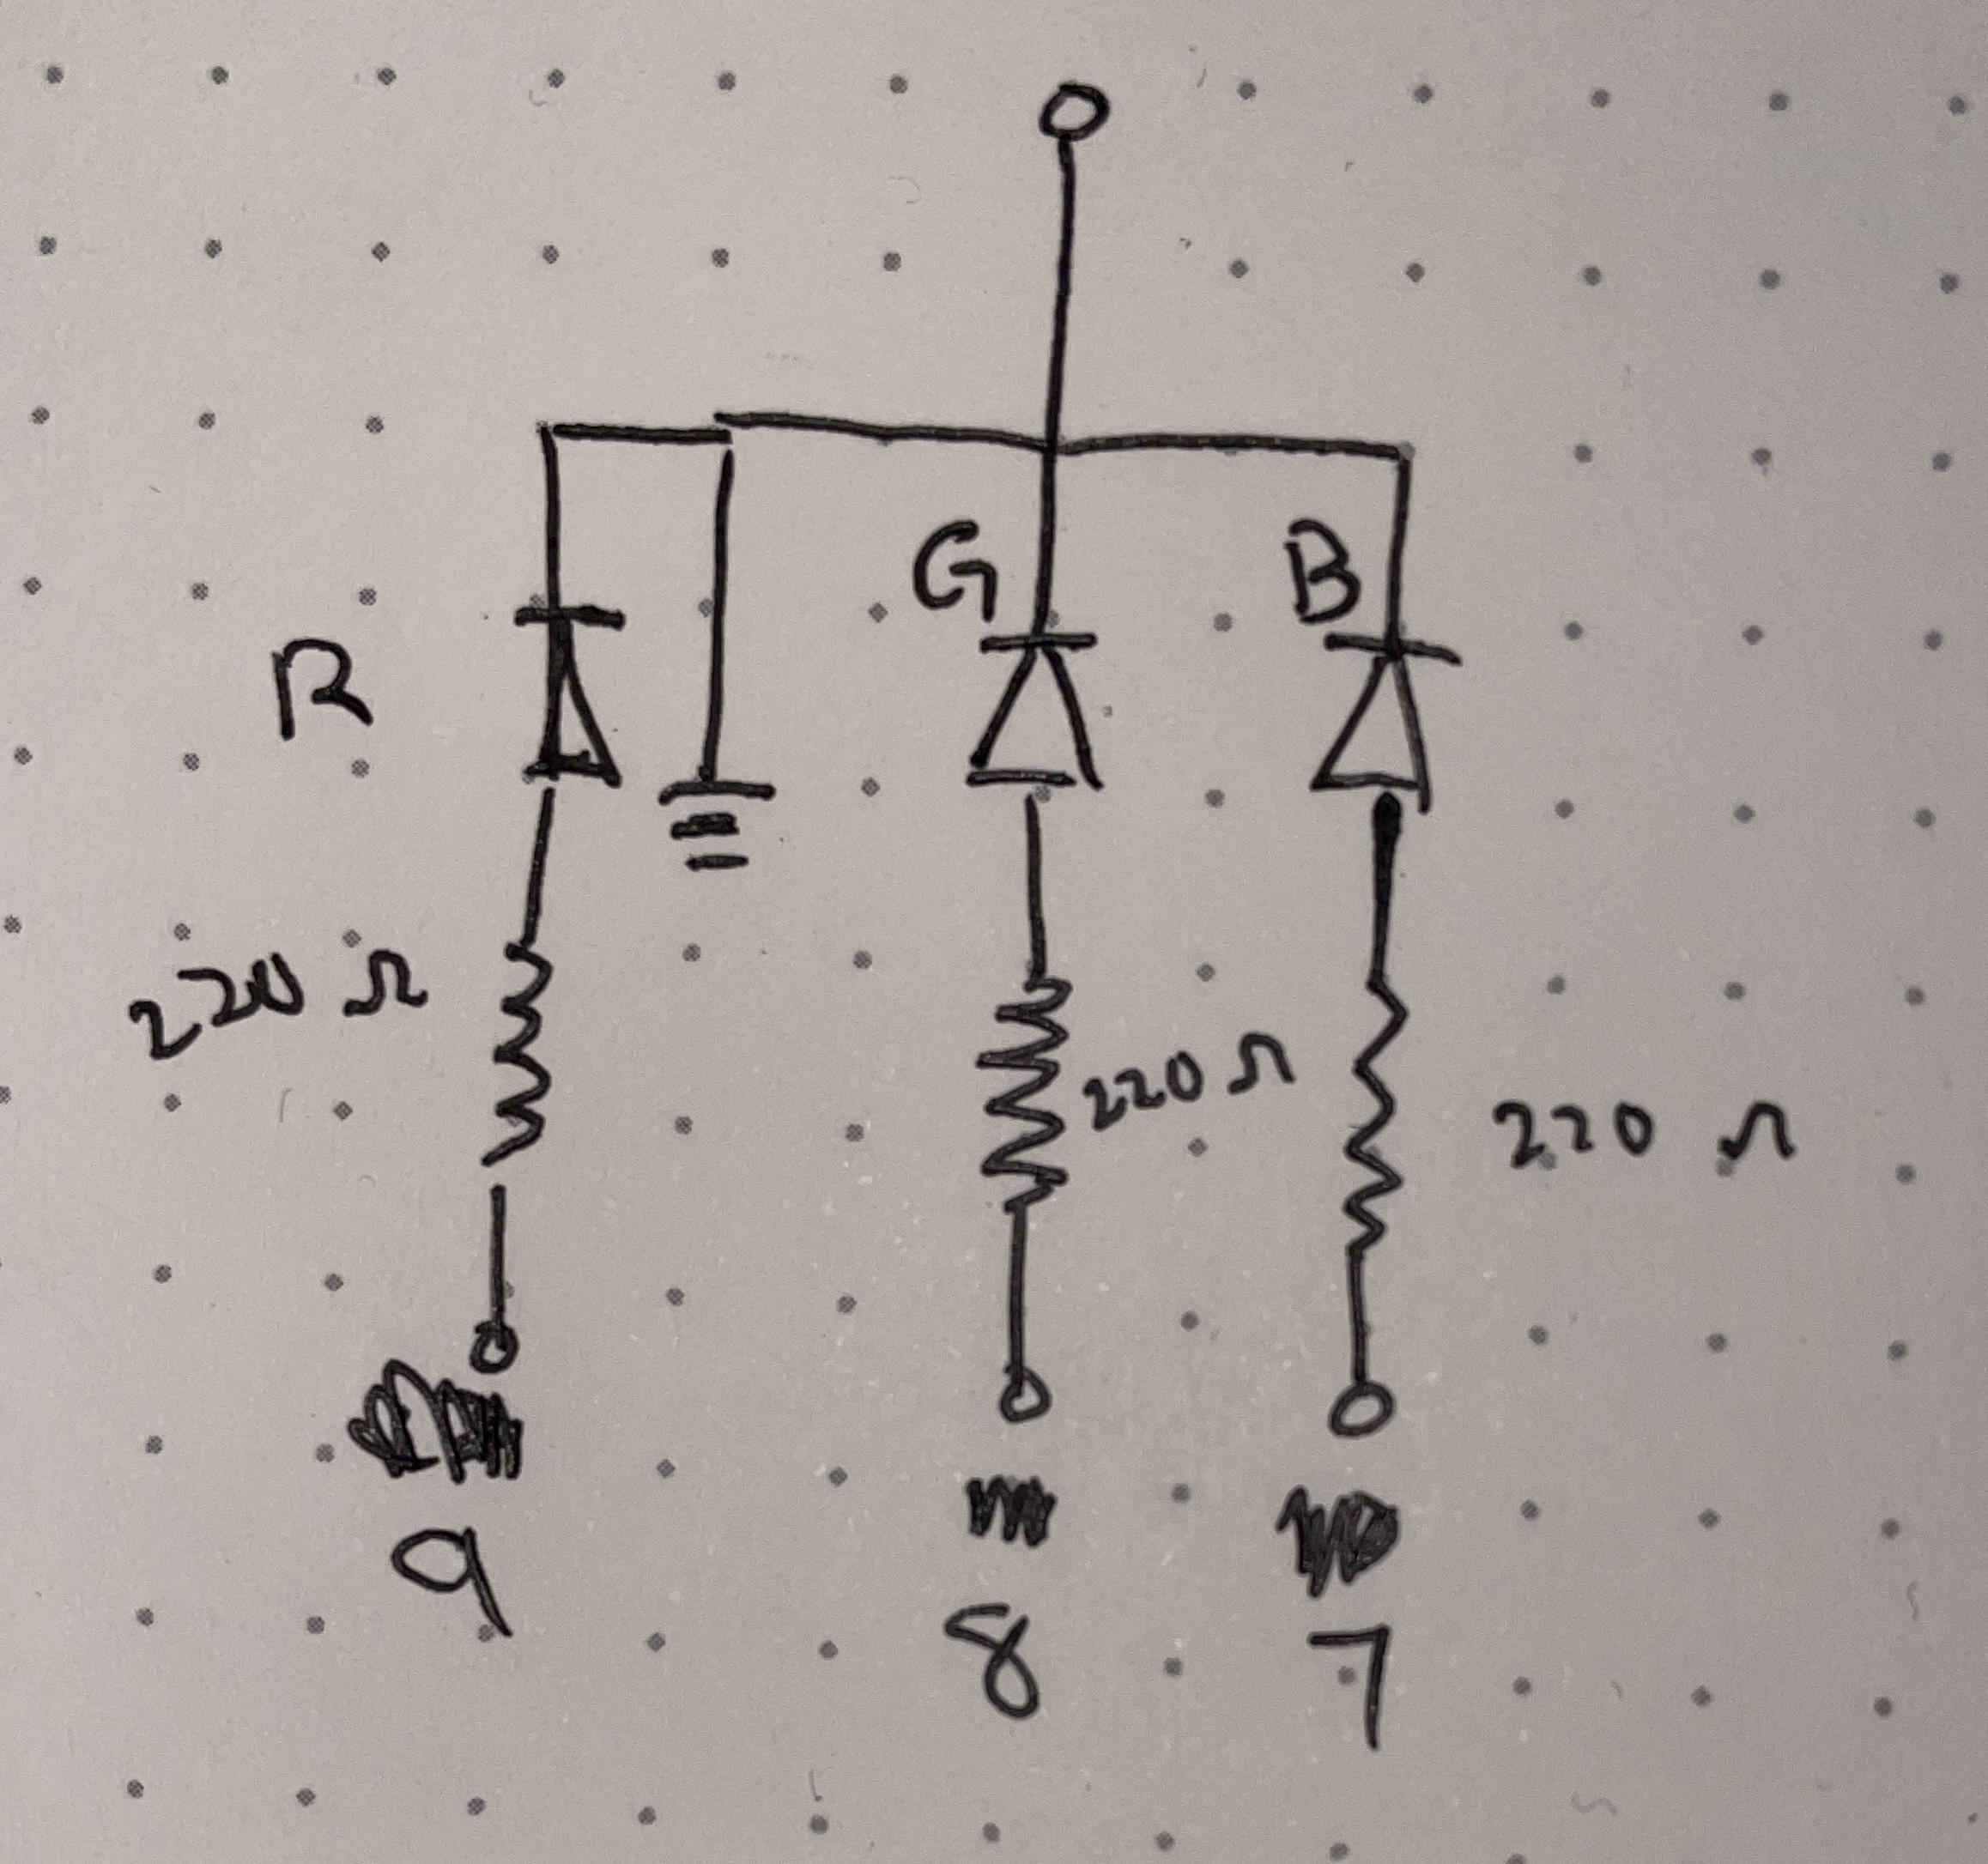 G B
R
220 Ω
220 Ω
220 Ω
9
8
7